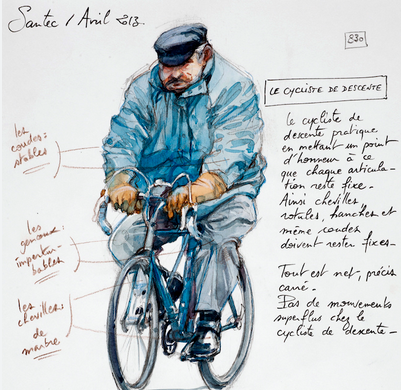 Santec / Avril 2013.
230
LE CYCLISTE DE DESCENTE
le cycliste de
descente pratique
en mettant un point
d'honneur à ce
que chaque articula-
tion reste fixe -
Ainsi chevilles
rotules, hanches et
même coudes
doivent rester fixes -
Tout est net, précis
carré -
Pas de mouvements
superflus chez le
cycliste de descente -
les
coudes :
stables
les
genoux :
impertur-
bables
les
chevilles
de
marbre